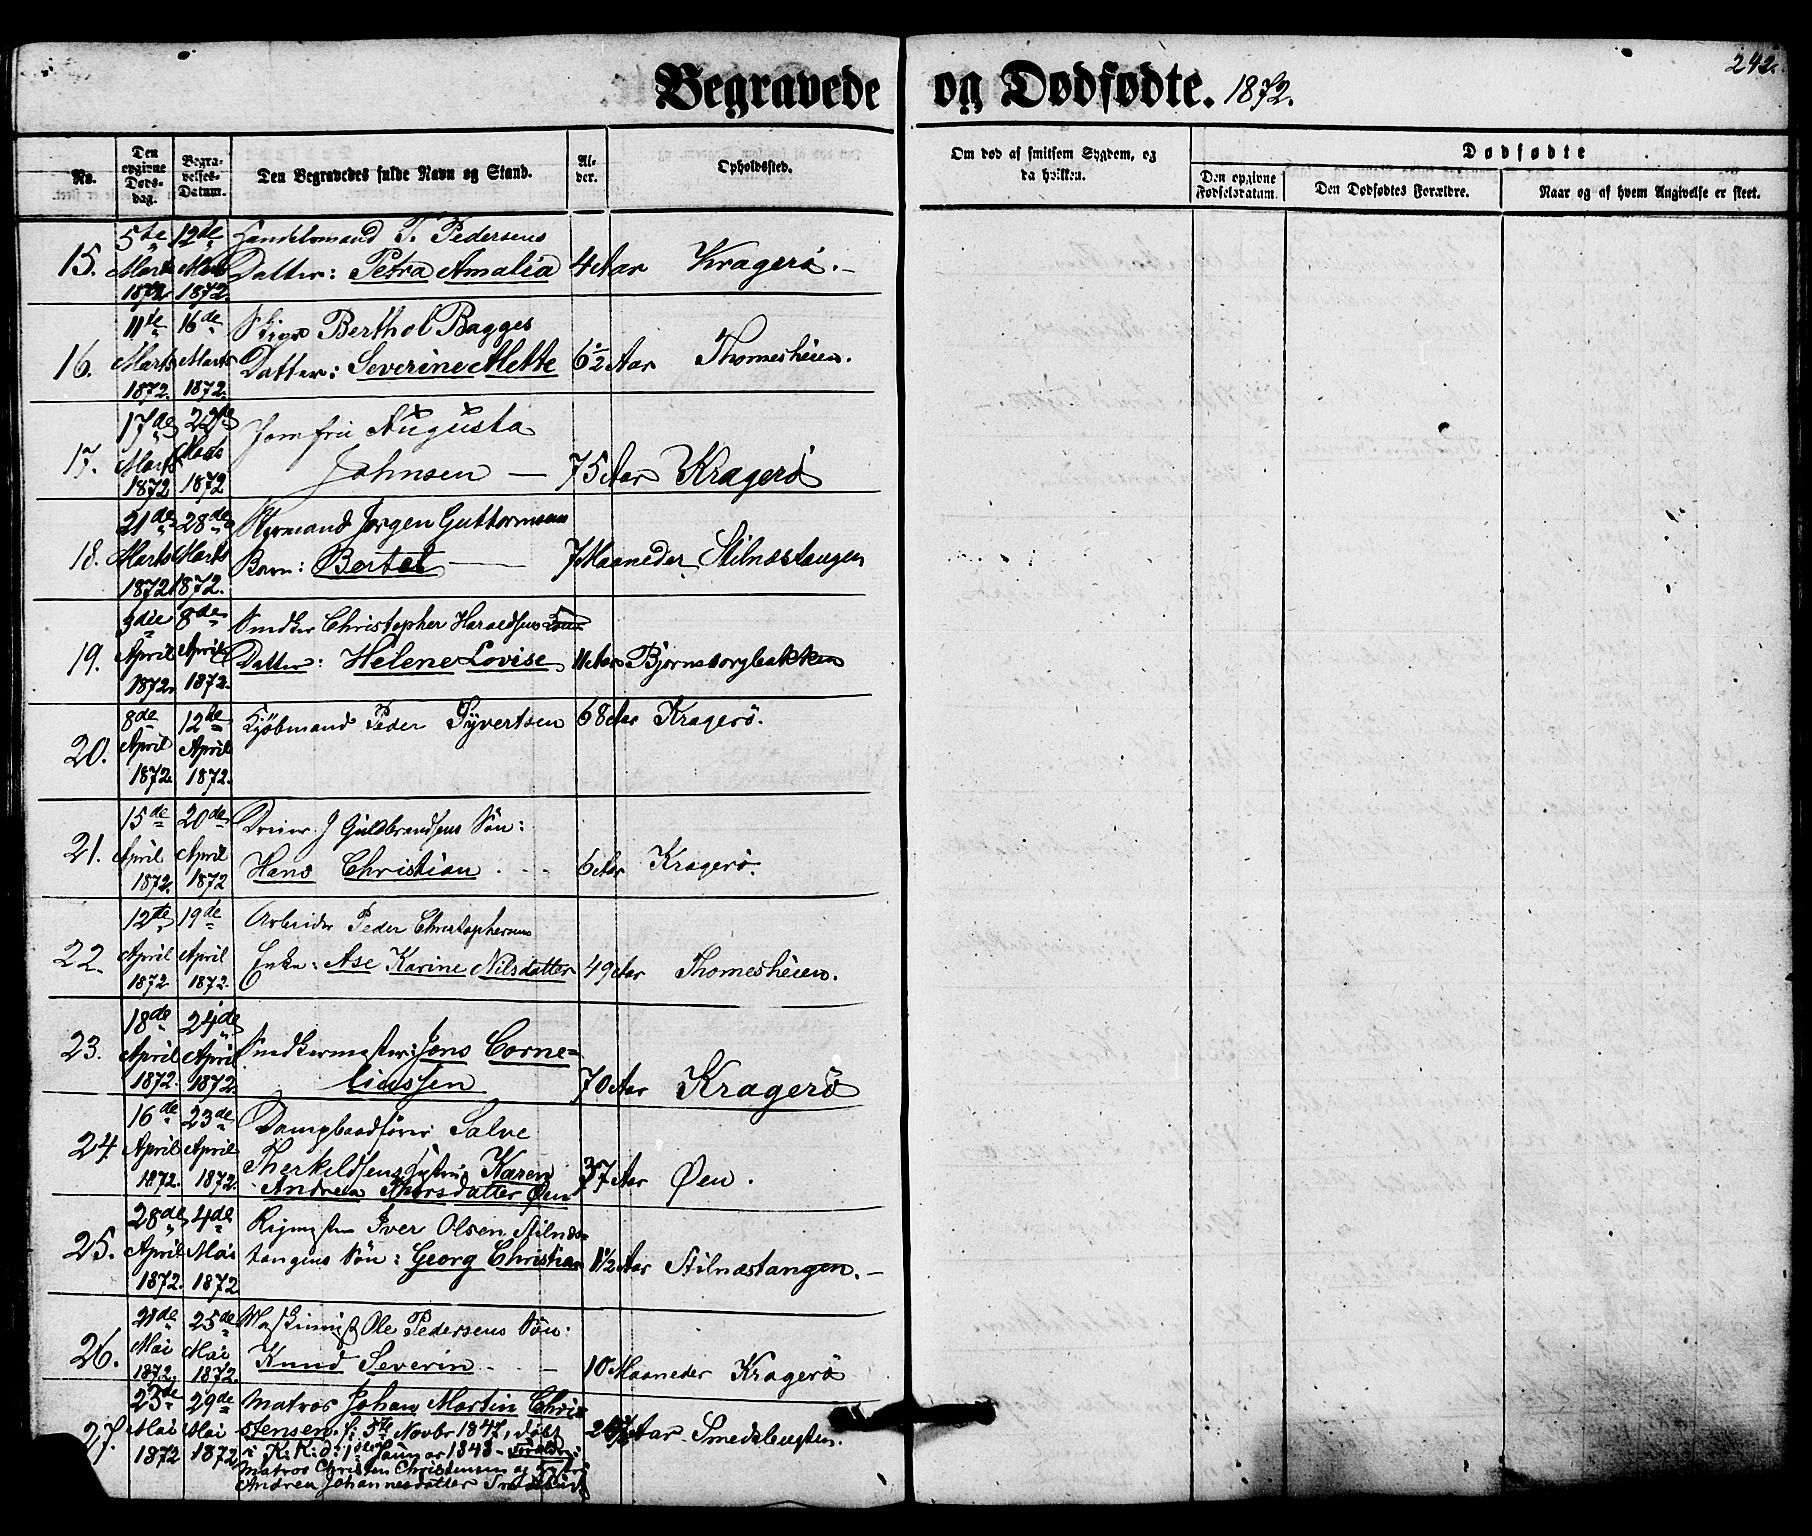 242.
Begravede og Dødfødte. 1872.
No.
Den opgivne Døds-dag.
Begra-velses-Datum.
Den Begravedes fulde Navn og Stand.
Al-der.
Opholdssted.
Om død af smitsom Sygdom, og da hvilken.
Dødfødte
Den opgivne Fødselsdatum.
Den Dødfødtes Forældre.
Naar og af hvem Angivelse er skeet.
15. 5te Marts 1872 12te Marts 1872. Handelsmand T. Pedersens
Datter: Petra Amalia 4 Aar Kragerö.-
16. 11te Marts 1872. 16de Marts 1872. Berthol Bagges
Datter: Severine Mette 6 1/2 Aar Thomesheien.
17. 17de Marts 1872 22de Marts 1872 Jomfru Augusta
Johnsen — 75 Aar Kragerö
18. 21de Marts 1872 28de Marts 1872. Styrmand Jørgen Guttormsens
Barn: Bertel — 7 Maaneder Stilnæstangen
19. 3die April 1872. 8de April 1872. Snedker Christopher Haraldsens
Datter: Helene Lovise 11 Aar Bjørnsborgbakken
20. 8de April 1872. 12te April 1872. Kjøbmand Peder Syvertsen 68 Aar Kragerö.
21. 15de April 1872. 20de April 1872 J Guldbrandsens Sön:
Hans Christian 6 Aar Kragerö.
22. 12te April 1872. 19de April 1872. Arbeider Peder Christophersens
Enke: Ase Karine Nilsdatter 49 Aar Thomesheien.
23. 18de April 1872. 24de April 1872. Snedkermester: Jens Corne=
liussen 70 Aar Kragerö
24. 16de April 1872. 23de April 1872. Dampbaadfører Salve
Therkildsens Hustru Karen
Andrea Thorsdatter Øen 37 Aar Øen.
25. 28de April 1872. 4de Mai 1872 Iver Olsen Stilnæs-
tangens Sön: Georg Christian 1 1/2 Aar Stilnæstangen.-
26. 21de Mai 1872. 25de Mai 1872. Maskinist Ole Pedersens Sön:
Knud Severin 10 Maaneder Kragerö
27. 23de Mai 1872 29de Mai 1872 Matros Johan Martin Chris
stensen, f. 5te Novbr 1847, døbt
i K. K. d: 1ste Januar 1848 - Forældre:
Matros Christen Christensen og Hustru
Andrea Johannesdatter 24 1/2 Aar Smedsbugten.